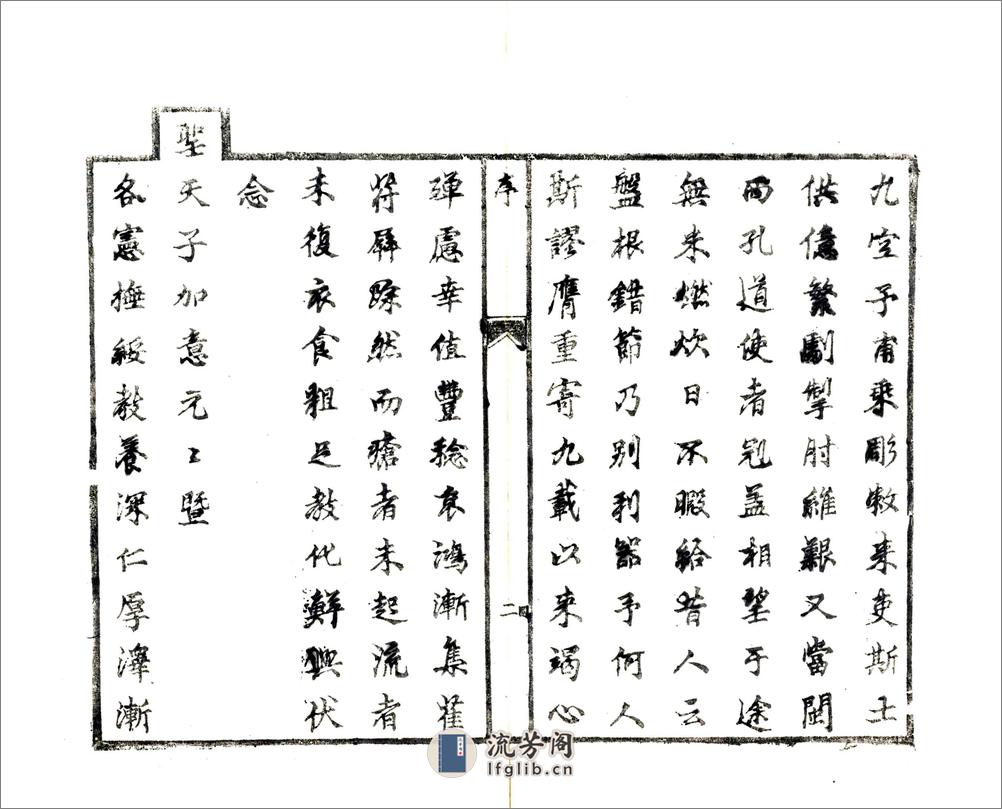 九空予甫乘彫敝来吏斯土
供億繁劇掣肘維艱又當閩
西孔道使者冠盖相望于途
無米燃炊日不暇給昔人云
盤根錯節乃别利器予何人
斯謬膺重寄九載以来竭心
序
二
殫慮幸值豐稔哀鴻漸集萑
苻屏除然而瘡者未起流者
未復衣食粗足教化鮮興伏
念
聖天子加意元〻暨
各憲撫綏教養深仁厚澤漸
流芳阁
lfglib.cn